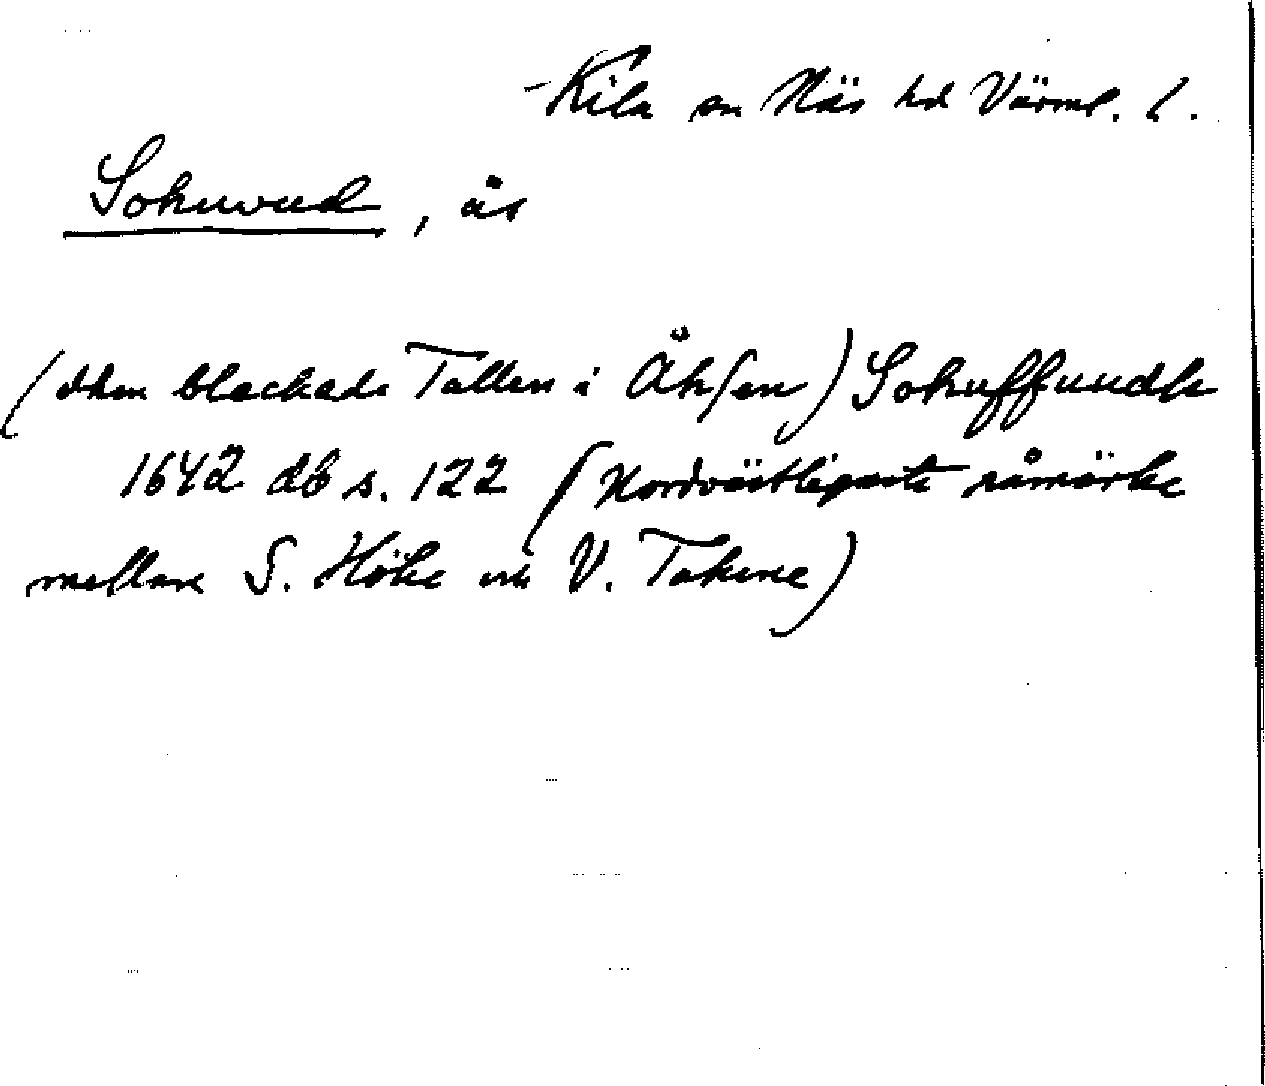 Kila sn Näs hd Värml. l.
Sokuvud, ås
(dhen bleckade Tallen i Åhsen) Sokuffuudh
1642 db s. 122 (Nordvästligaste råmärke
mellan S. Höke och V. Takene)